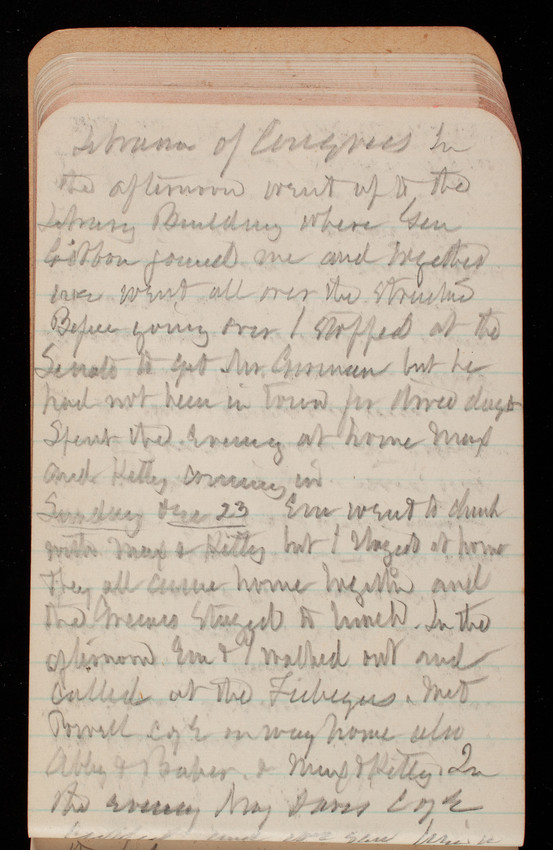 of Congress In
the afternoon went up to the
Library Building where Gen
joined me and together
we went all over the structure
Before going over I stopped at the
Senate to get Mr. Gorman but he
had not been in town for three days
Spent the evening at home Max
and Kitty coming in
Sunday Dec 23 Em went to church
with Max & Kitty but I stayed at home
They all came home together and
the Greenes stayed to lunch. In the
afternoon Em & I walked out and
called at the Met
Powell C of E on way home also
Abby & Baber. & Max & Kitty. In
the evening Maj Davis C of E
called and we saw